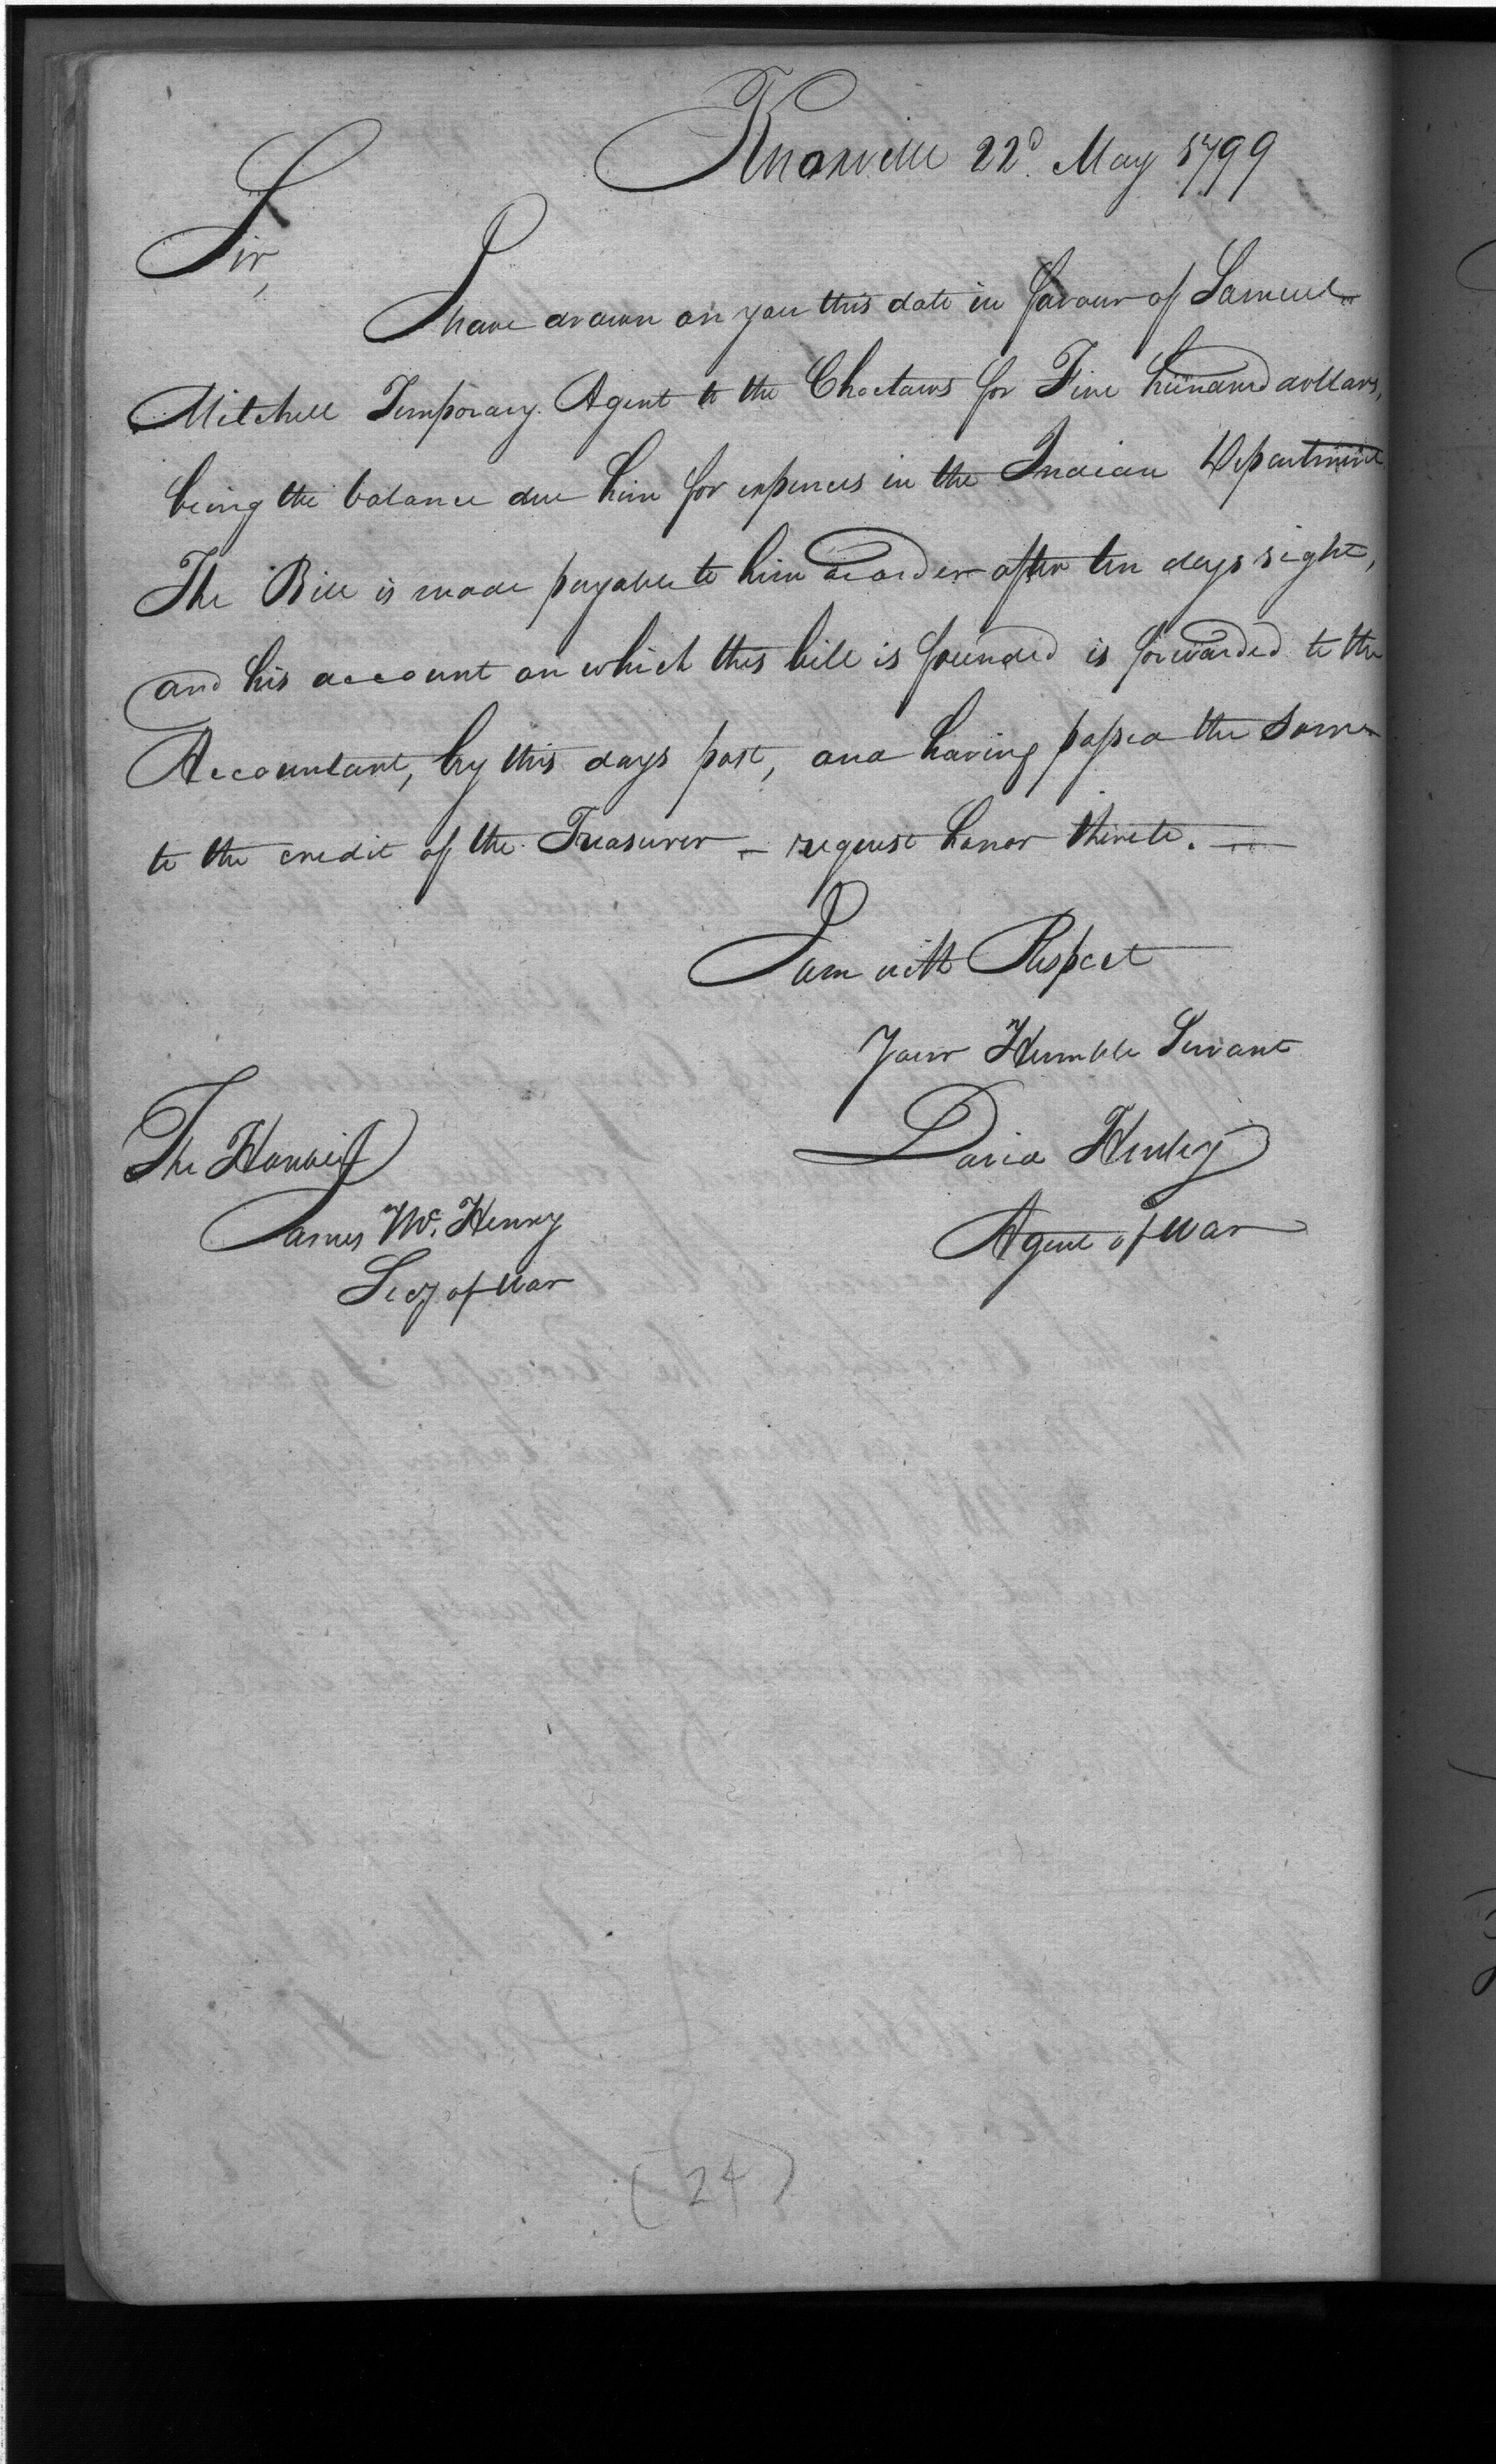 Knoxville 22d. May 1799
Sir,
I have drawn on you this date in favour of Samuel
Mitchell Temporary Agent to the Choctaws for Five hundred dollars,
being the balance due him for expences in the Indian Department
The Bill is made payable to him or order after ten days sight,
and his account on which this bill is founded is forwarded to the
Accountant, by this days post, and having passed the same
to the credit of the Treasurer — request honor thereto. —
I am with Respect
Your Humble Servant
David Henley
Agent of War
The Honble
James Mc. Henry
Secy of War
(24)